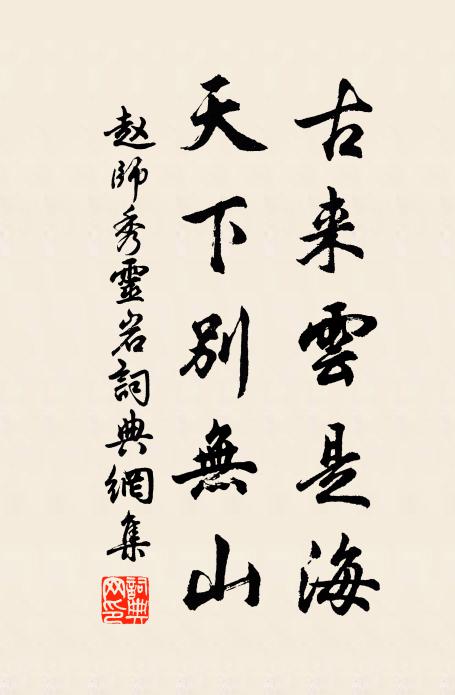 古来雲是海
天下別無山
赵師秀靈岩詞典網集
詞典网印